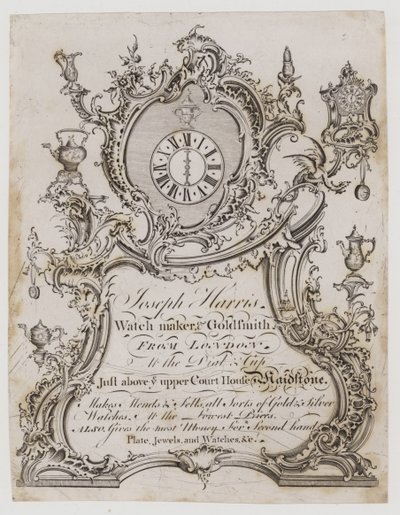 Joseph Harris.
Watch maker, & Goldsmith,
FROM LONDON.
At the Dial & Cup
Just above ye upper Court House, Maidstone.
Makes Mends & Sells, all Sorts of Gold & Silver
Watches, At the Lowest Prices.
ALSO, Gives the most Money For Second hand
Plate, Jewels, and Watches, &c.